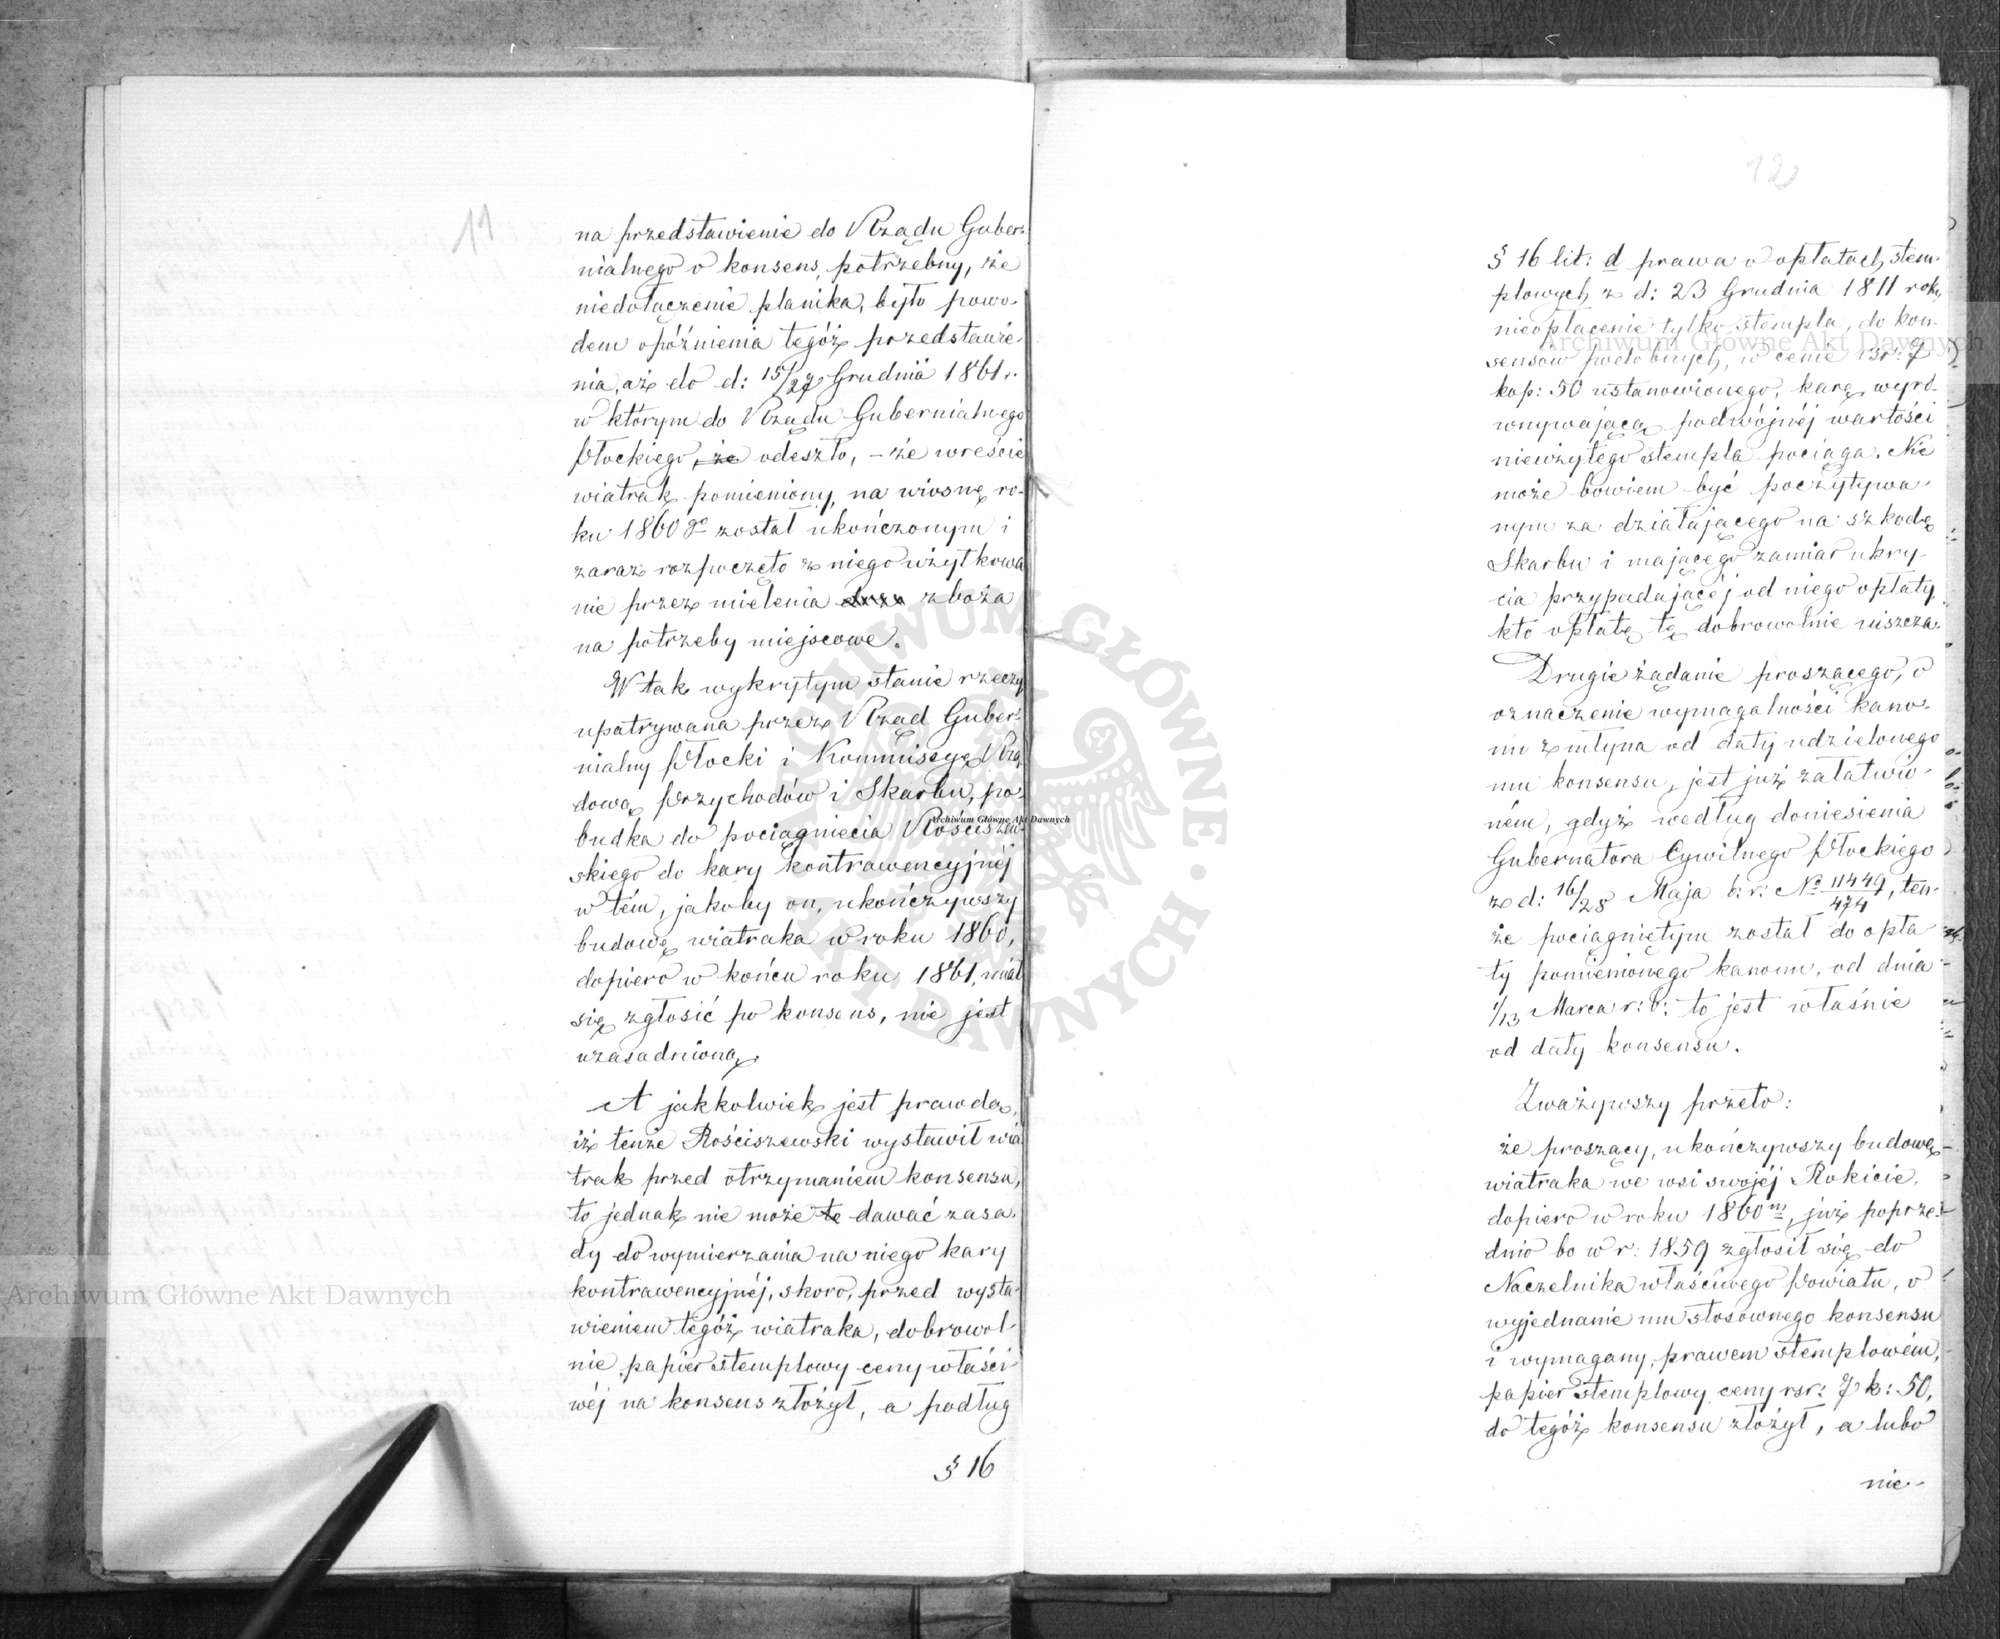 11
na przedstawienie do Rządu Guber-
nialnego o konsens potrzebny, że
niedołączenie planika, było powo-
dem opóźnienia tegóż przedstawie-
nia, aż do d: 15/27 Grudnia 1861 r.
w którym do Rządu Gubernialnego
Płockiego, że odeszło, – że wreście
wiatrak pomieniony, na wiosnę ro-
ku 1860 go został ukończonym i
zaraz rozpoczęto z niego użytkowa
nie przez mielenia zboża
na potrzeby miejscowe.
W tak wykrytym stanie rzeczy
upatrywana przez Rząd Guber-
nialny Płocki i Kommissyę Rzą
dową Przychodów i Skarbu, po-
budka do pociągnięcia Rościszew-
skiego do kary kontrawencyjnéj
w tém, jakoby on, ukończywszy
budowę wiatraka w roku 1860,
dopiero w końcu roku 1861, miał
się zgłosić po konsens, nie jest
uzasadnioną.
A jakkolwiek jest prawdą,
iż tenże Rościszewski wystawił wia
trak przed otrzymaniem konsensu,
to jednak nie może te dawać zasa-
dy do wymierzania na niego kary
kontrawencyjnéj, skoro, przed wysta-
wieniem tegóż wiatraka, dobrowol-
nie papier stemplowy ceny właści-
wéj na konsens złożył, a podług
§ 16
12
§ 16 lit: d prawa o opłatach stem-
plowych z d: 23 Grudnia 1811 roku
nieopłacenie tylko stempla, do kon-
sensów podobnych, w cenie rsr: 7
kop: 50 ustanowionego, karę wyró-
wnywającą podwójnéj wartości
nieużytego stempla pociąga. Nie
może bowiem być poczytywa-
nym za działającego na szkodę
Skarbu i mającego zamiar ukry-
cia przypadającéj od niego opłaty
kto opłatę tę dobrowolnie uiszcza.
Drugie żądanie proszącego, o
oznaczenie wymagalności kano-
nu z młyna od daty udzielonego
mu konsensu, jest już załatwio-
ném, gdyż według doniesienia
Gubernatora Cywilnego Płockiego
z d: 16/28 Maja b: r: No 11449/474, ten-
że pociągniętym został do opła
ty pomienionego kanonu, od dnia
1/13 Marca r: b: to jest właśnie
od daty konsensu.
Zważywszy przeto:
że proszący, ukończywszy budowę
wiatraka we wsi swojéj Rokicie,
dopiero w roku 1860 m, już poprze-
dnio bo w r: 1859 zgłosił się do
Naczelnika właściwego Powiatu, o
wyjednanie mu stosownego konsensu
i wymagany prawem stemplowém,
papier stemplowy ceny rsr: 7 k: 50,
do tegóż konsensu złożył, a lubo
nie-
Archiwum Główne Akt Dawnych
Archiwum Główne Akt Dawnych
Archiwum Główne Akt Dawnych
ARCHIWUM GŁÓWNE AKT DAWNYCH